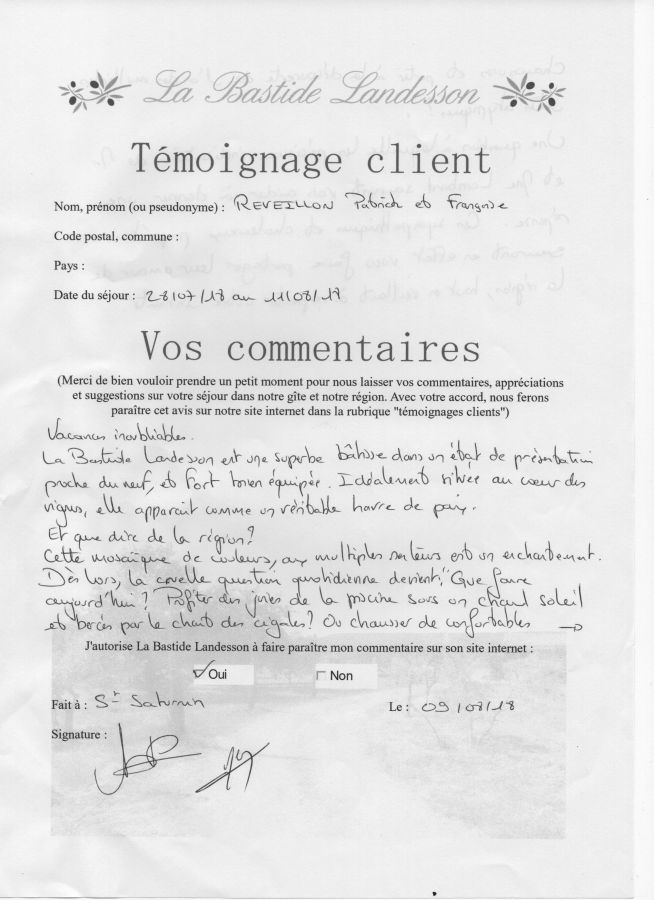 La Bastide Landesson
Témoignage client
Nom, prénom (ou pseudonyme) : REVEILLON Patrick et Françoise
Code postal, commune :
Pays :
Date du séjour : 28/07/18 au 11/08/18
Vos commentaires
(Merci de bien vouloir prendre un petit moment pour nous laisser vos commentaires, appréciations
et suggestions sur votre séjour dans notre gîte et notre région. Avec votre accord, nous ferons
paraître cet avis sur notre site internet dans la rubrique "témoignages clients")
Vacances inoubliables.
La Bastide Landesson est une superbe bâtisse dans un état de présentation
proche du neuf, et fort bien équipée. Idéalement située au cœur des
vignes, elle apparait comme un véritable havre de paix.
Et que dire de la région?
Cette mosaïque de couleurs, aux multiples senteurs est un enchantement.
Dès lors, la cruelle question quotidienne devient, "Que faire
aujourd'hui? Profiter des joies de la piscine sous un chaud soleil
et bercés par le chant des cigales? Ou chausser de confortables →
J'autorise La Bastide Landesson à faire paraître mon commentaire sur son site internet :
Oui Non
Fait à : St Saturnin Le : 09/08/18
Signature :